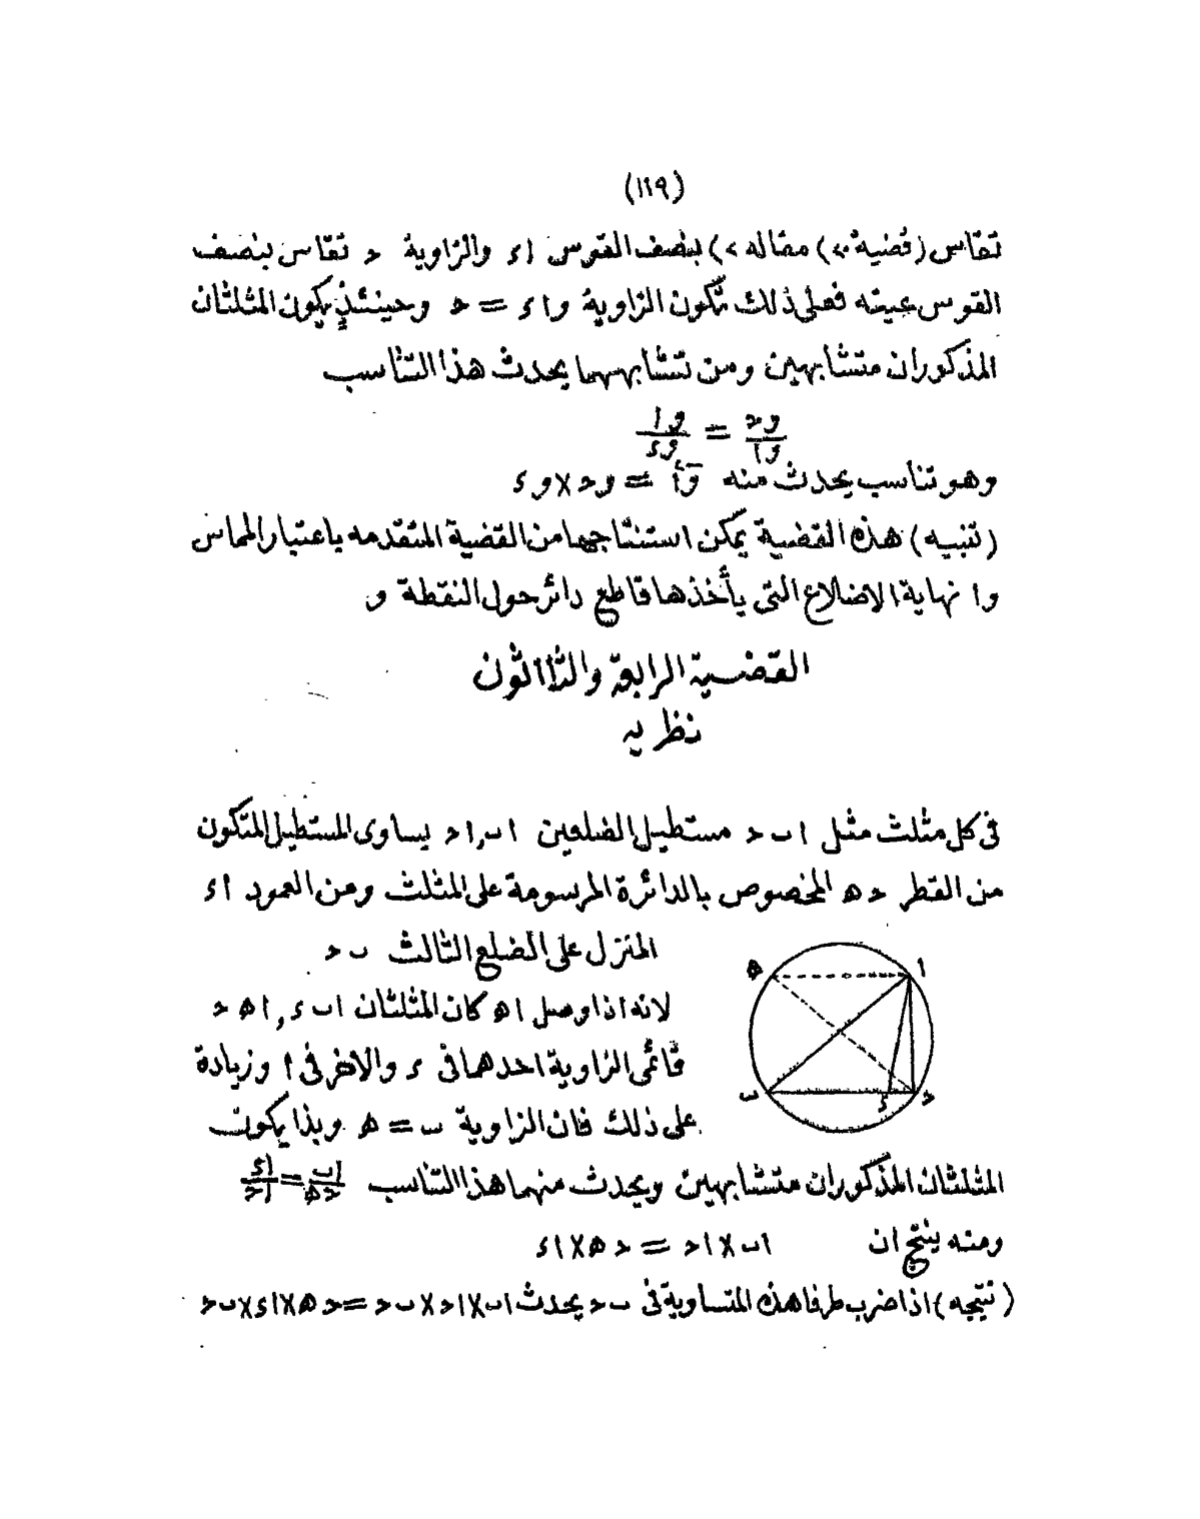 (١١٩)
تقاس (قضية ٢٠) مقاله ٢) بنصف القوس ا ء والزاوية ح تقاس بنصف
القوس عينه فعلى ذلك تكون الزاوية و ا ء = ح وحينئذٍ يكون المثلثان
المذكوران متشابهين ومن تشابههما يحدث هذا التناسب
وح/وا = وا/وء
وهو تناسب يحدث منه و‌ا٢ = وح × وء
(تنبيه) هذه القضية يمكن استنتاجها من القضية المتقدمه باعتبار المماس
وا نهاية الاضلاع التى يأخذها قاطع دائر حول النقطة و
القضية الرابعة والثالثون
نظريه
فى كل مثلث مثل ا ٮ ح مستطيل الضلعين اٮ , اح يساوى المستطيل المتكون
من القطر ح ه المخصوص بالدائرة المرسومة على المثلث ومن العمود ا ء
المنزل على الضلع الثالث ٮ ح
لانه اذا وصل ا ه كان المثلثان ا ٮ ء , ا ه ح
قائمى الزاوية احدهما فى ء والاخر فى ا وزيادة
على ذلك فان الزاوية ٮ = ه وبذا يكون
المثلثان المذكوران متشابهين ويحدث منهما هذا التناسب اٮ/حه = اء/اح
ومنه ينتج ان اٮ × اح = حه × اء
(نتيجه) اذا ضرب طرفا هذه المتساوية فى ٮ ح يحدث اٮ × اح × ٮح = حه × اء × ٮح
ه
ا
ٮ
ء
ح